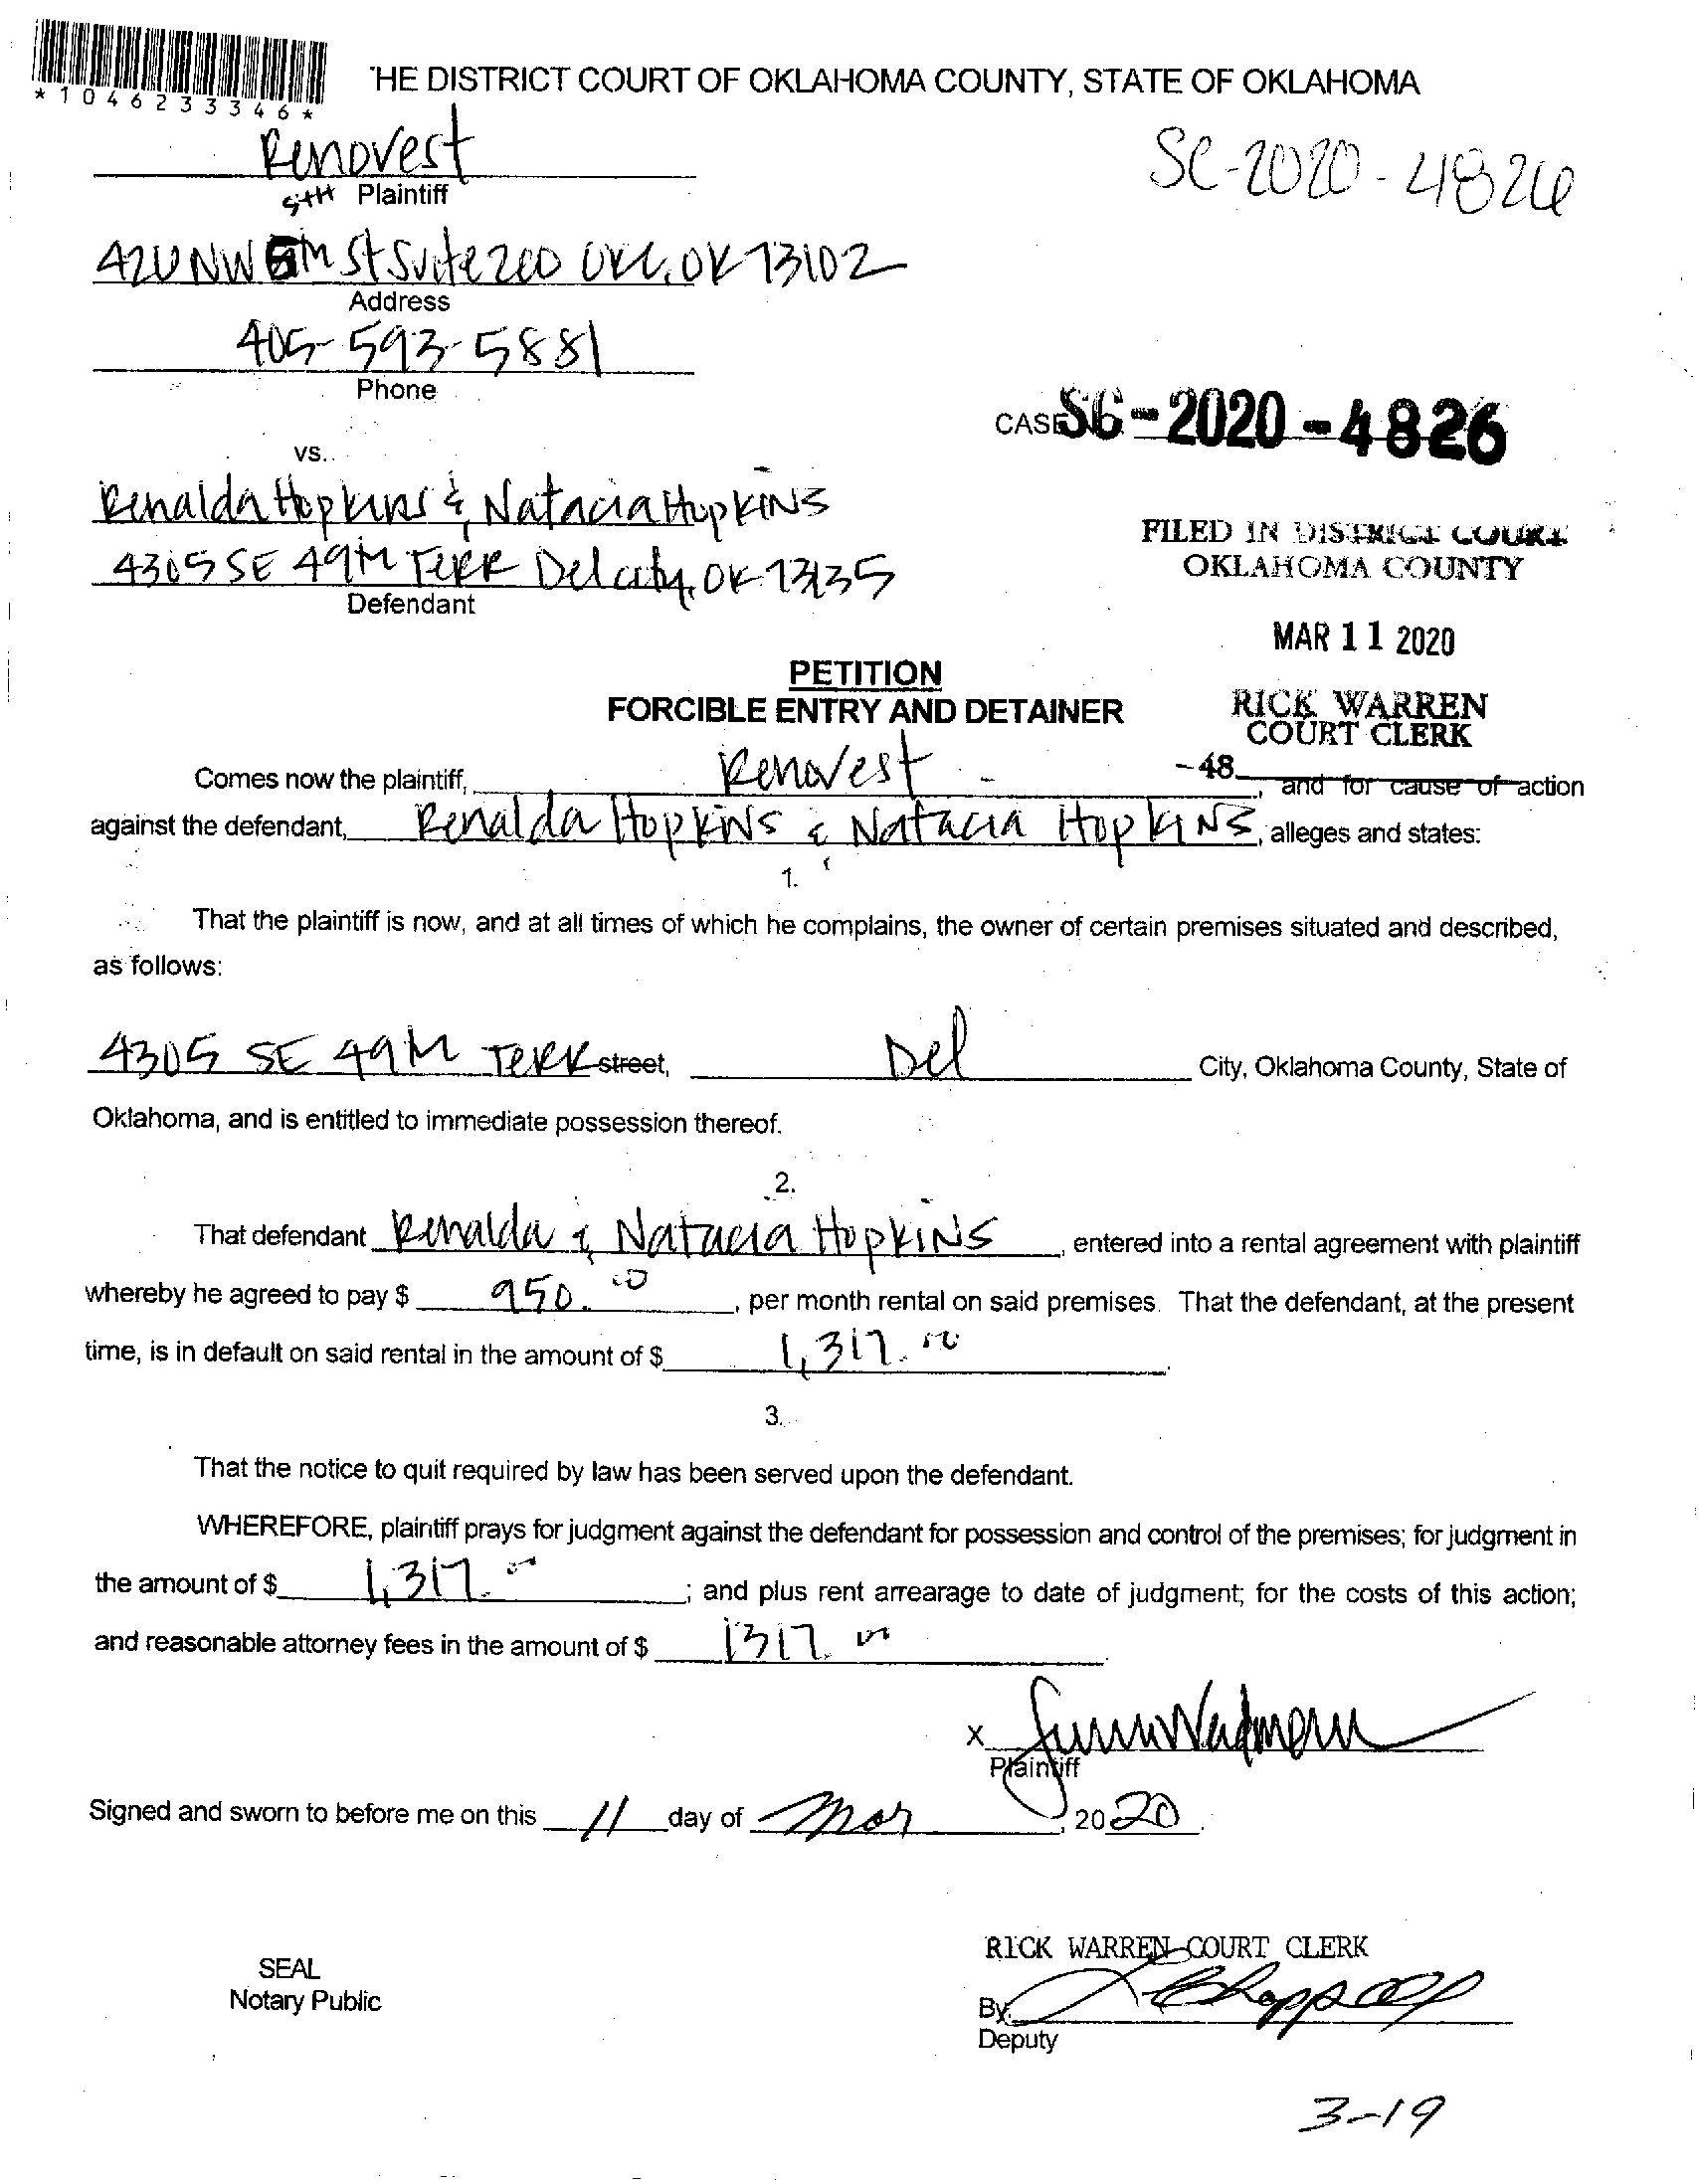 *1046233346*
'HE DISTRICT COURT OF OKLAHOMA COUNTY, STATE OF OKLAHOMA
Renovest
5th Plaintiff
SC-2020-4826
420 NW 5th St Suite 200 OKC, OK 73102
Address
405-593-5881
Phone
CASE SC-2020-4826
vs.
Renalda Hopkins & Natacia Hopkins
4305 SE 49th Terr Del city, OK 73135
Defendant
FILED IN DISTRICT COURT
OKLAHOMA COUNTY
MAR 11 2020
PETITION
FORCIBLE ENTRY AND DETAINER
RICK WARREN
COURT CLERK
Comes now the plaintiff, Renovest -48 , and for cause of action
against the defendant, Renalda Hopkins & Natacia Hopkins, alleges and states:
1.
That the plaintiff is now, and at all times of which he complains, the owner of certain premises situated and described,
as follows:
4305 SE 49th Terr street, Del City, Oklahoma County, State of
Oklahoma, and is entitled to immediate possession thereof.
2.
That defendant Renalda & Natacia Hopkins, entered into a rental agreement with plaintiff
whereby he agreed to pay $ 950.00, per month rental on said premises. That the defendant, at the present
time, is in default on said rental in the amount of $ 1,317.00.
3.
That the notice to quit required by law has been served upon the defendant.
WHEREFORE, plaintiff prays for judgment against the defendant for possession and control of the premises; for judgment in
the amount of $ 1,317.00; and plus rent arrearage to date of judgment; for the costs of this action;
and reasonable attorney fees in the amount of $ 1317.00.
X
Plaintiff
Signed and sworn to before me on this 11 day of Mar, 2020.
RICK WARREN COURT CLERK
SEAL
Notary Public
By
Deputy
3-19